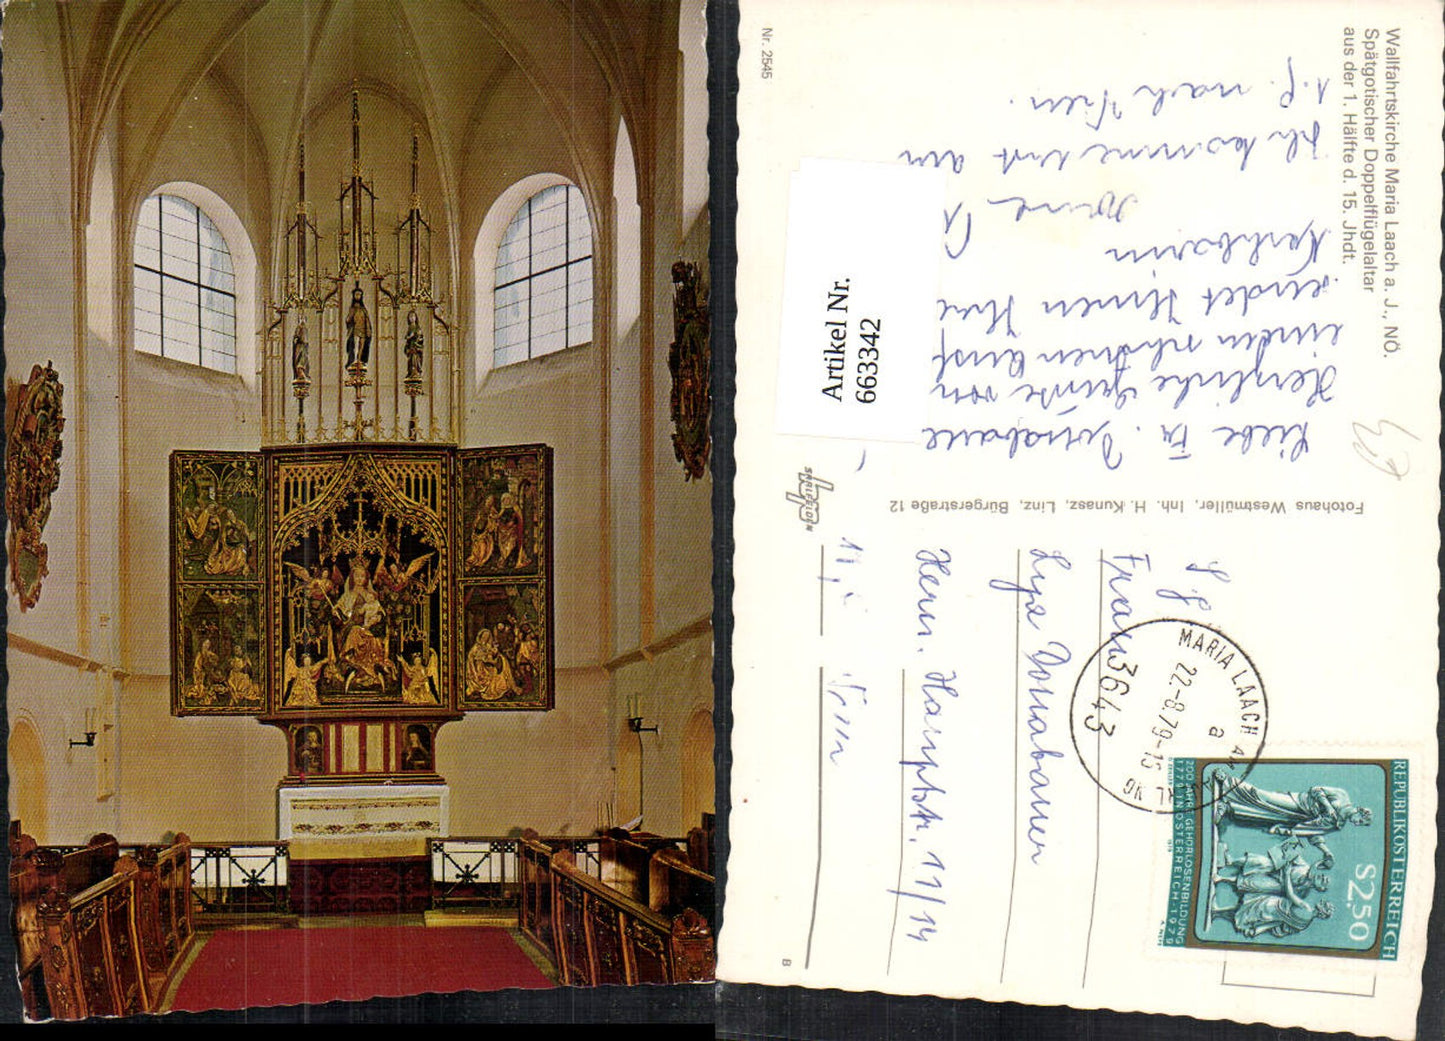 Wallfahrtskirche Maria Laach a. J., NÖ.
Spätgotischer Doppelflügelaltar
aus der 1. Hälfte d. 15. Jhdt.
Nr. 2545
Artikel Nr.
663342
Liebe Fr. Donabauer
Herzliche Grüße von
einem schönen
sendet Ihnen Ihre
Ich komme erst am
1.9. nach Wien.
Fotohaus Westmüller, Inh. H. Kunasz, Linz, Bürgerstraße 12
SPRLFELDEN
B
Frau
Donabauer
Herrn. Hauptstr. 11/14
Wien
MARIA LAACH AM JAUERL NG
22.-8.79-15
a
3643
REPUBLIK ÖSTERREICH
S 2.50
200 JAHRE GEHÖRLOSENBILDUNG
1779 IN ÖSTERREICH 1979